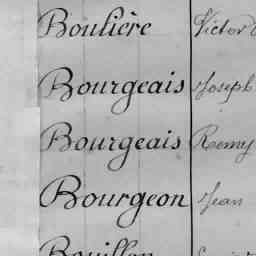 Boulière Victor
Bourgeais Joseph
Bourgeais Remy
Bourgeon Jean
Bouillon